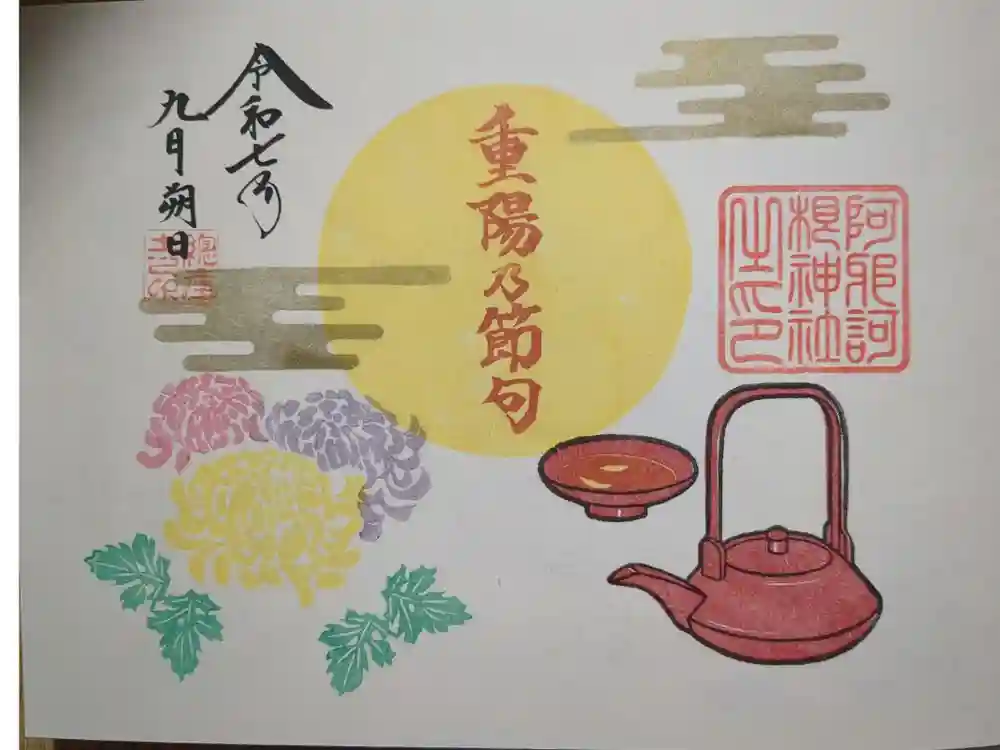 阿邪訶
根神社
之印
重陽乃節句
令和七年
九月朔日